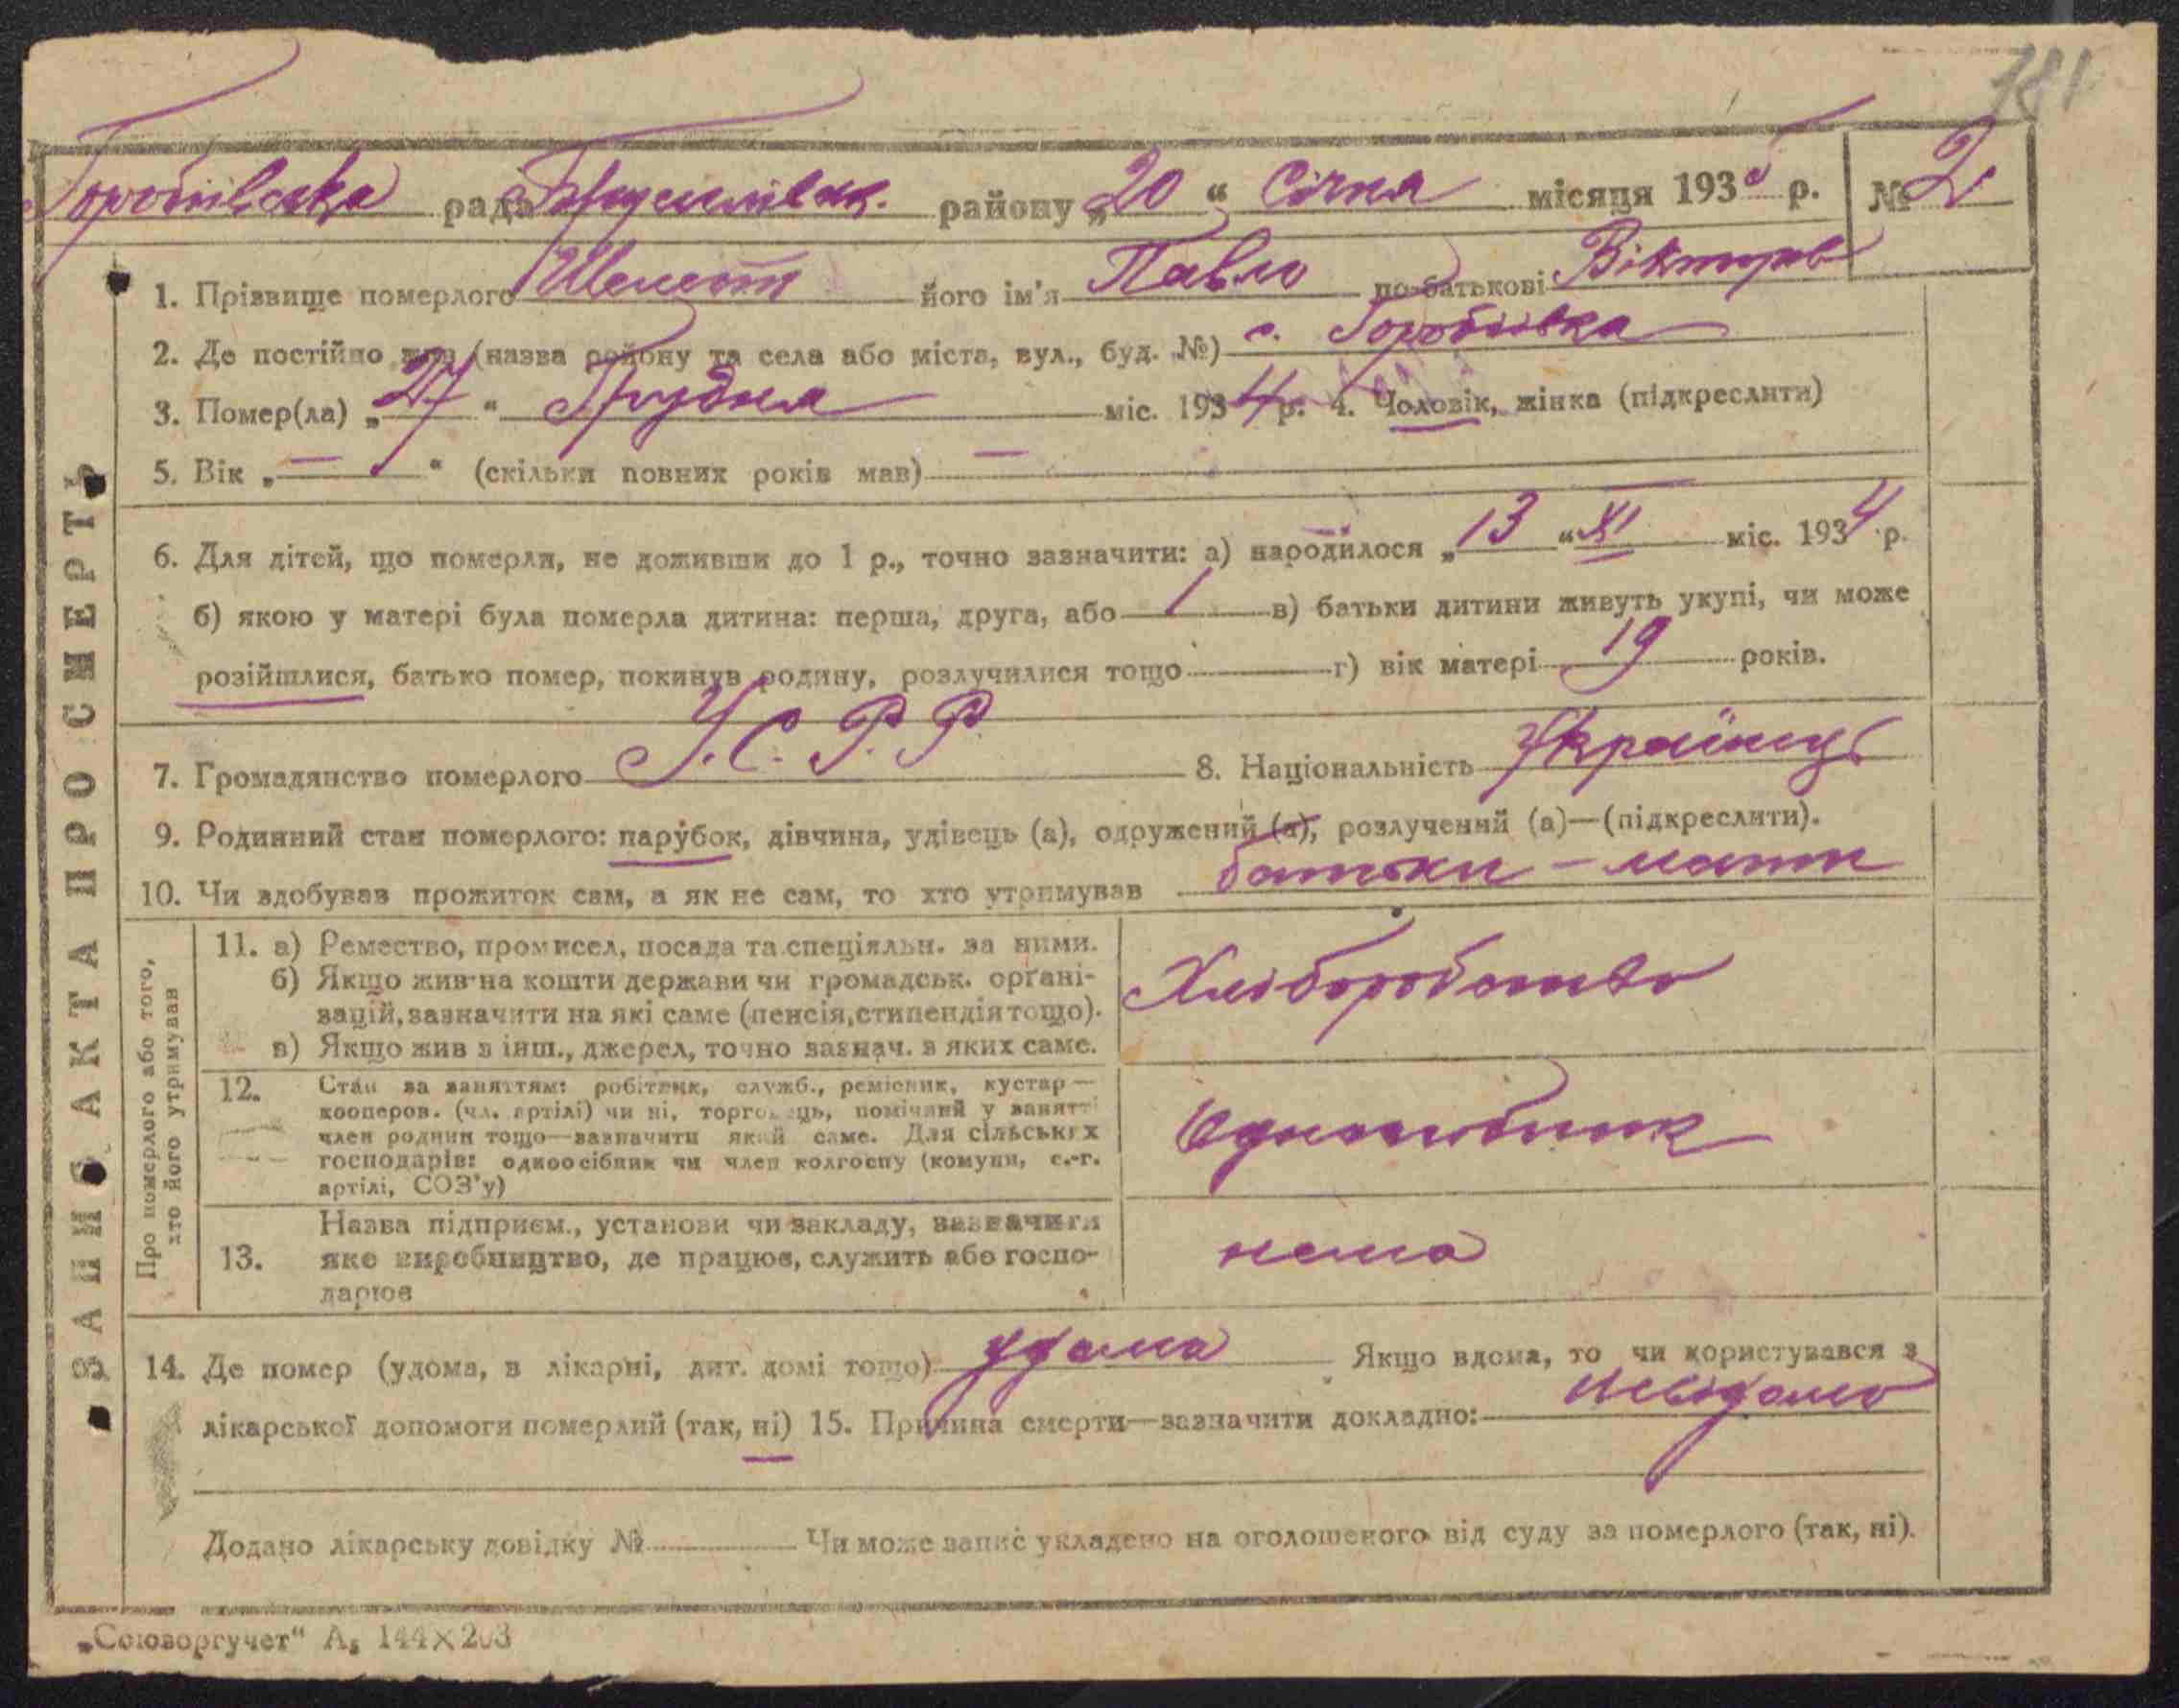 181
Горобіївська рада Брусилівськ. району „20“ Січня місяця 1935 р. № 2
1. Прізвище померлого Шелест його ім'я Павло по-батькові Вікторов
2. Де постійно жив (назва району та села або міста, вул., буд. №) с. Горобіївка
3. Помер(ла) „27“ Грудня міс. 1934 р. 4. Чоловік, жінка (підкреслити)
5. Вік „—“ (скільки повних років мав) —
6. Для дітей, що померли, не доживши до 1 р., точно зазначити: а) народилося „13“ XI міс. 1934 р.
б) якою у матері була померла дитина: перша, друга, або 1 в) батьки дитини живуть укупі, чи може
розійшлися, батько помер, покинув родину, розлучилися тощо г) вік матері 19 років.
7. Громадянство померлого У.С.Р.Р. 8. Національність Українець
9. Родинний стан померлого: парубок, дівчина, удівець (а), одружений (а), розлучений (а)—(підкреслити).
10. Чи здобував прожиток сам, а як не сам, то хто утримував батьки - мати
11. а) Ремество, промисел, посада та спеціяльн. за ними.
б) Якщо жив на кошти держави чи громадськ. орґані-
зацій, зазначити на які саме (пенсія, стипендія тощо).
в) Якщо жив з інш., джерел, точно зазнач. з яких саме.
Хліборобство
12. Стан за заняттям: робітник, служб., ремісник, кустар—
кооперов. (чл. артілі) чи ні, торговець, помічний у занятті
член родини тощо—зазначити який саме. Для сільських
господарів: одноосібник чи член колгоспу (комуни, с.-г.
артілі, СОЗ'у)
Одноосібник
13. Назва підприєм., установи чи закладу, зазначити
яке виробництво, де працює, служить або госпо-
дарює
нема
14. Де помер (удома, в лікарні, дит. домі тощо) удома Якщо вдома, то чи користувався з
лікарської допомоги померлий (так, ні) 15. Причина смерти—зазначити докладно: невідомо
Додано лікарську довідку № Чи може запис укладено на оголошеного від суду за померлого (так, ні).
„Союзоргучет“ А₅ 144×203
ЗАПИС АКТА ПРО СМЕРТЬ
Про померлого або того,
хто його утримував